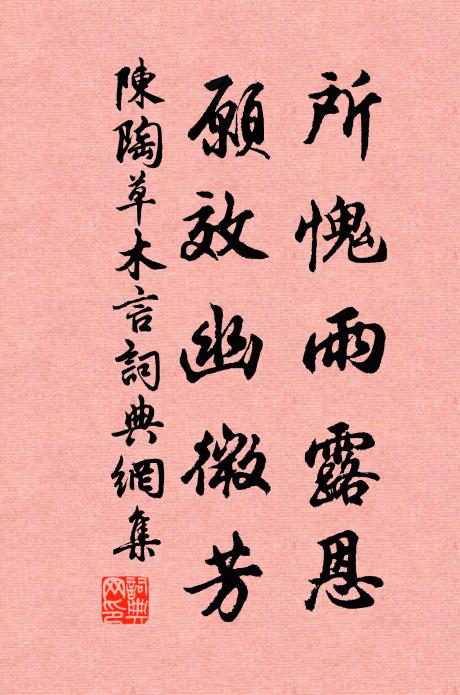 所愧雨露恩
願效幽微芳
陳陶草木言詞典網集
詞典网印